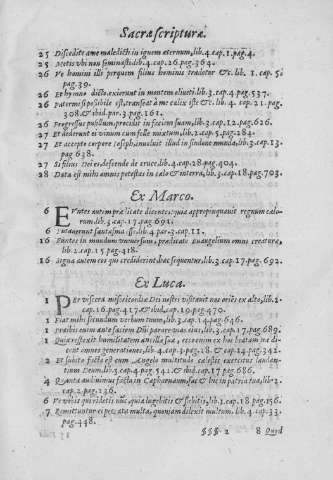 Sacræ scripturæ.
25 Discedite a me maledicti in ignem æternum, lib.4.cap.1.pag.4.
25 Metis vbi non seminasti.lib.4.cap.26.pag.364.
26 Ve homini illi per quem filius hominis tradetur &c. lib. 1. cap.5.
pag.39.
26 Et hymno dicto exierunt in montem oliueti.lib.3.cap.4.pag.537.
26 Pater mi si possibile est, transeat a me calix iste &c. lib. 4. cap. 21. pag.
308.& ibid.par.3.pag.161.
26 Progressus pusillum procidit in faciem suam, lib.3.cap.12.pag.626.
27 Et dederunt ei vinum cum felle mixtum, lib.2.cap.5.pag.284.
27 Et accepto corpore Ioseph, inuoluit illud in sindone munda, lib.3.cap.13.
pag 638.
27 Si filius Dei es, descende de cruce, lib.4.cap.28.pag.404.
28 Data est mihi omnis potestas in cælo & in terra, lib.3.cap.18.pag.703.
Ex Marco.
6 EVntes autem prædicate dicentes: quia appropinquauit regnum cælo-
rum.lib.3.cap.17.pag.691.
6 lib.4.par.3.cap.11.
16 Euntes in mundum vniuersum, prædicate Euangelium omni creaturæ,
lib.2.cap.15.pag.418.
16 Signa autem eos qui crediderint, hæc sequentur, lib.3.cap.17.pag.692.
Ex Luca.
1 PEr viscera misericordiæ Dei nostri visitauit nos oriens ex alto, lib.2.
cap.16.pag.417.& ibid.cap.19.pag.470.
1 Fiat mihi secundum verbum tuum, lib.3.cap.14.pag.646.
1 Præibis enim ante faciem Domini parare vias eius, lib.3.cap.17.pag.689.
1 Quia respexit humilitatem ancillæ suæ, ecce enim ex hoc beatam me di-
cent omnes generationes, lib.4.cap.3.pag.18.& cap.14.pag.341.
2 Et subito facta est cum Angelo multitudo cælestis exercitus laudan-
tium Deum, lib.4.cap.4.pag.541.& ibid.cap.17.pag.686.
4 Quanta audiuimus facta in Capharnaum, fac & hic in patria tua, lib.2.
cap.2.pag.136.
6 Væ vobis qui ridetis nunc, quia lugebitis & flebitis, lib.3.cap.18.pag.156.
7 Remittuntur ei peccata multa, quoniam dilexit multum. lib.4.cap.33.
pag.448.
§§§ 2 8 Quid